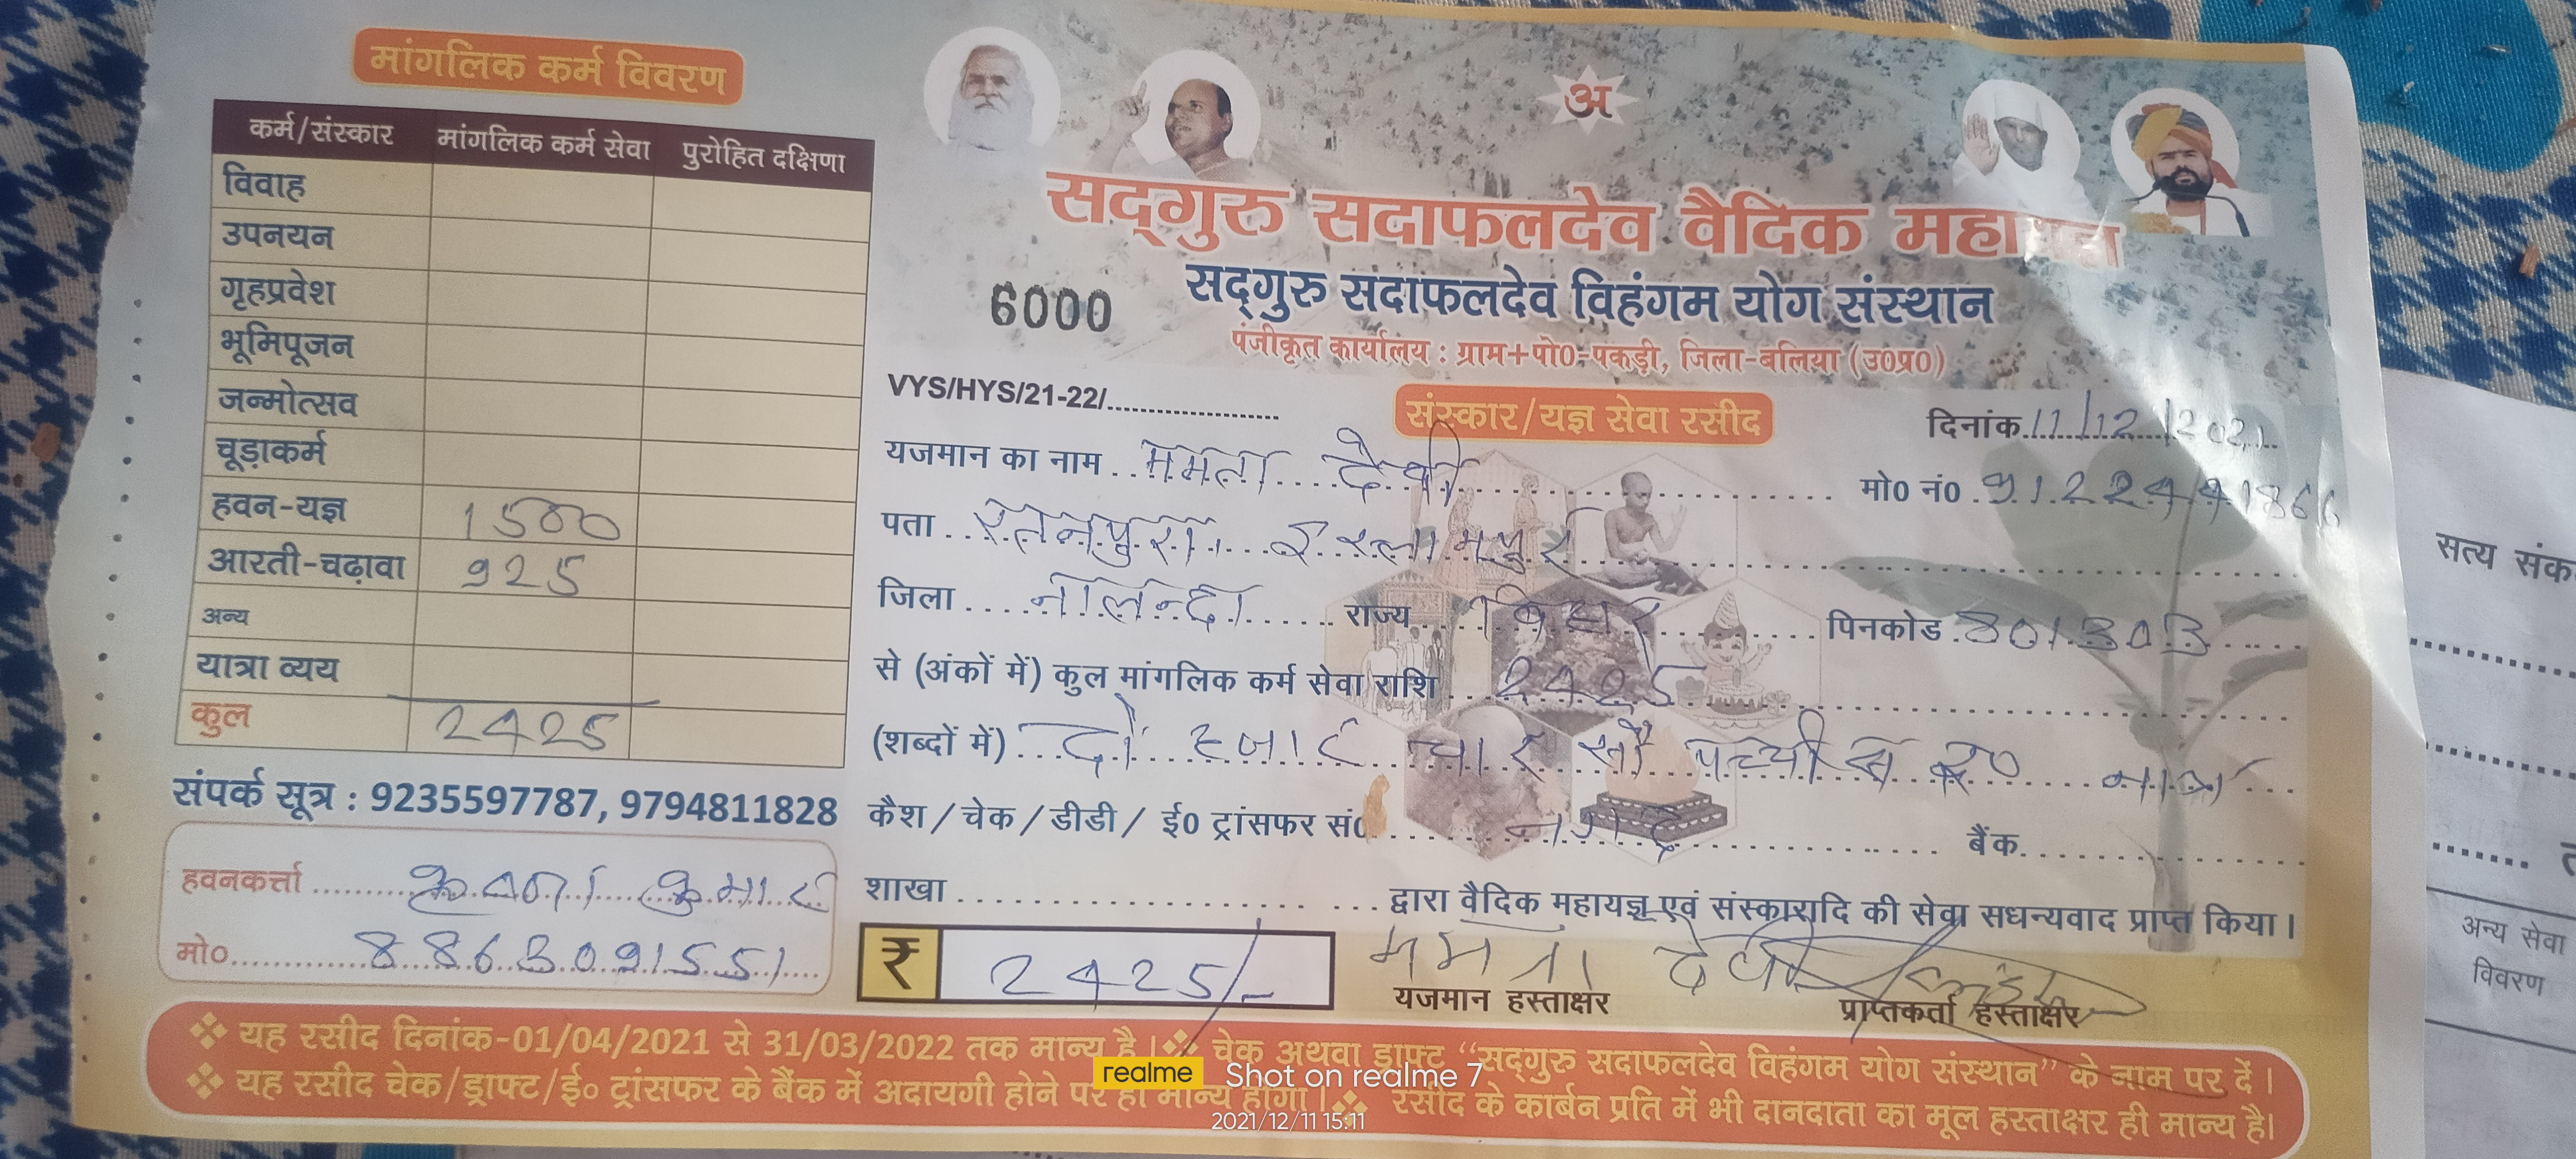 मांगलिक कर्म विवरण
कर्म/संस्कार मांगलिक कर्म सेवा पुरोहित दक्षिणा
विवाह
उपनयन
गृहप्रवेश
भूमिपूजन
जन्मोत्सव
चूड़ाकर्म
हवन-यज्ञ 1500
आरती-चढ़ावा 925
अन्य
यात्रा व्यय
कुल 2425
संपर्क सूत्र : 9235597787, 9794811828
हवनकर्त्ता कुमारी
मो० 8863091551
अ
सद्गुरु सदाफलदेव वैदिक
6000 सद्गुरु सदाफलदेव विहंगम योग संस्थान
पंजीकृत कार्यालय : ग्राम+पो0-पकड़ी, जिला-बलिया (उ0प्र0)
VYS/HYS/21-22/ संस्कार/यज्ञ सेवा रसीद दिनांक 11/12/2021
यजमान का नाम ममता देवी मो0 नं0 9122441866
पता रतनपुरा इस्लामपुर
जिला नालन्दा राज्य बिहार पिनकोड 801303
से (अंकों में) कुल मांगलिक कर्म सेवा राशि 2425
(शब्दों में) दो हजार चार सौ पच्चीस रु० मात्र
कैश / चेक / डीडी / ई0 ट्रांसफर सं0 नगद बैंक
शाखा द्वारा वैदिक महायज्ञ एवं संस्कारादि की सेवा सधन्यवाद प्राप्त किया।
₹ 2425/- ममता देवी
यजमान हस्ताक्षर प्राप्तकर्ता हस्ताक्षर
❖ यह रसीद दिनांक-01/04/2021 से 31/03/2022 तक मान्य है। ❖ चेक अथवा ड्राफ्ट “सद्गुरु सदाफलदेव विहंगम योग संस्थान” के नाम पर दें।
❖ यह रसीद चेक/ड्राफ्ट/ई० ट्रांसफर के बैंक में अदायगी होने पर ही मान्य होगा। ❖ रसीद के कार्बन प्रति में भी दानदाता का मूल हस्ताक्षर ही मान्य है।
realme Shot on realme 7
2021/12/11 15:11
सत्य
अन्य सेवा
विवरण